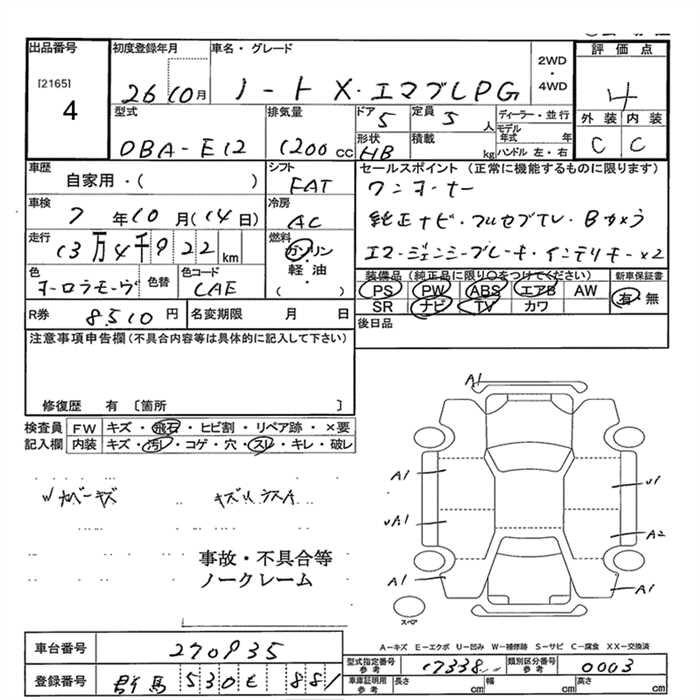 出品番号 初度登録年月 車名・グレード 評価点
[2165]
4
26 10月 ノート X・エマブレPG 2WD・4WD 4
型式 排気量 ドア 定員 ディーラー・並行 外装 内装
DBA-E12 1200cc 5 5人 モデル年式 年 C C
形状 積載 ハンドル 左・右
HB kg
車歴 シフト セールスポイント (正常に機能するものに限ります)
自家用・( ) FAT ワンオーナー
車検 冷房 純正ナビ・フルセグTV・Bカメラ
7年10月(14日) AC
走行 燃料 エマージェンシーブレーキ・インテリキー×2
13万4千922km ガソリン
軽油
( )
色 色替 色コード 装備品 (純正品に限り○をつけてください) 新車保証書
オーロラモーヴ LAE PS PW ABS エアB AW 有・無
SR ナビ TV カワ
R券 8510円 名変期限 月 日 後日品
注意事項申告欄(不具合内容等は具体的に記入して下さい)
修復歴 有 [箇所 ]
検査員 FW キズ・飛石・ヒビ割・リペア跡・×要
記入欄 内装 キズ・汚レ・コゲ・穴・スレ・キレ・破レ
A1
A1 U1
UA1 A2
A1 A1
事故・不具合等
ノークレーム
スペア
A－キズ E－エクボ U－凹み W－補修跡 S－サビ C－腐食 XX－交換済
車台番号 270935
型式指定番号 参考 17338 類別区分番号 参考 0003
登録番号 群馬 530 881
車庫証明用 参考 長さ cm 幅 cm 高さ cm